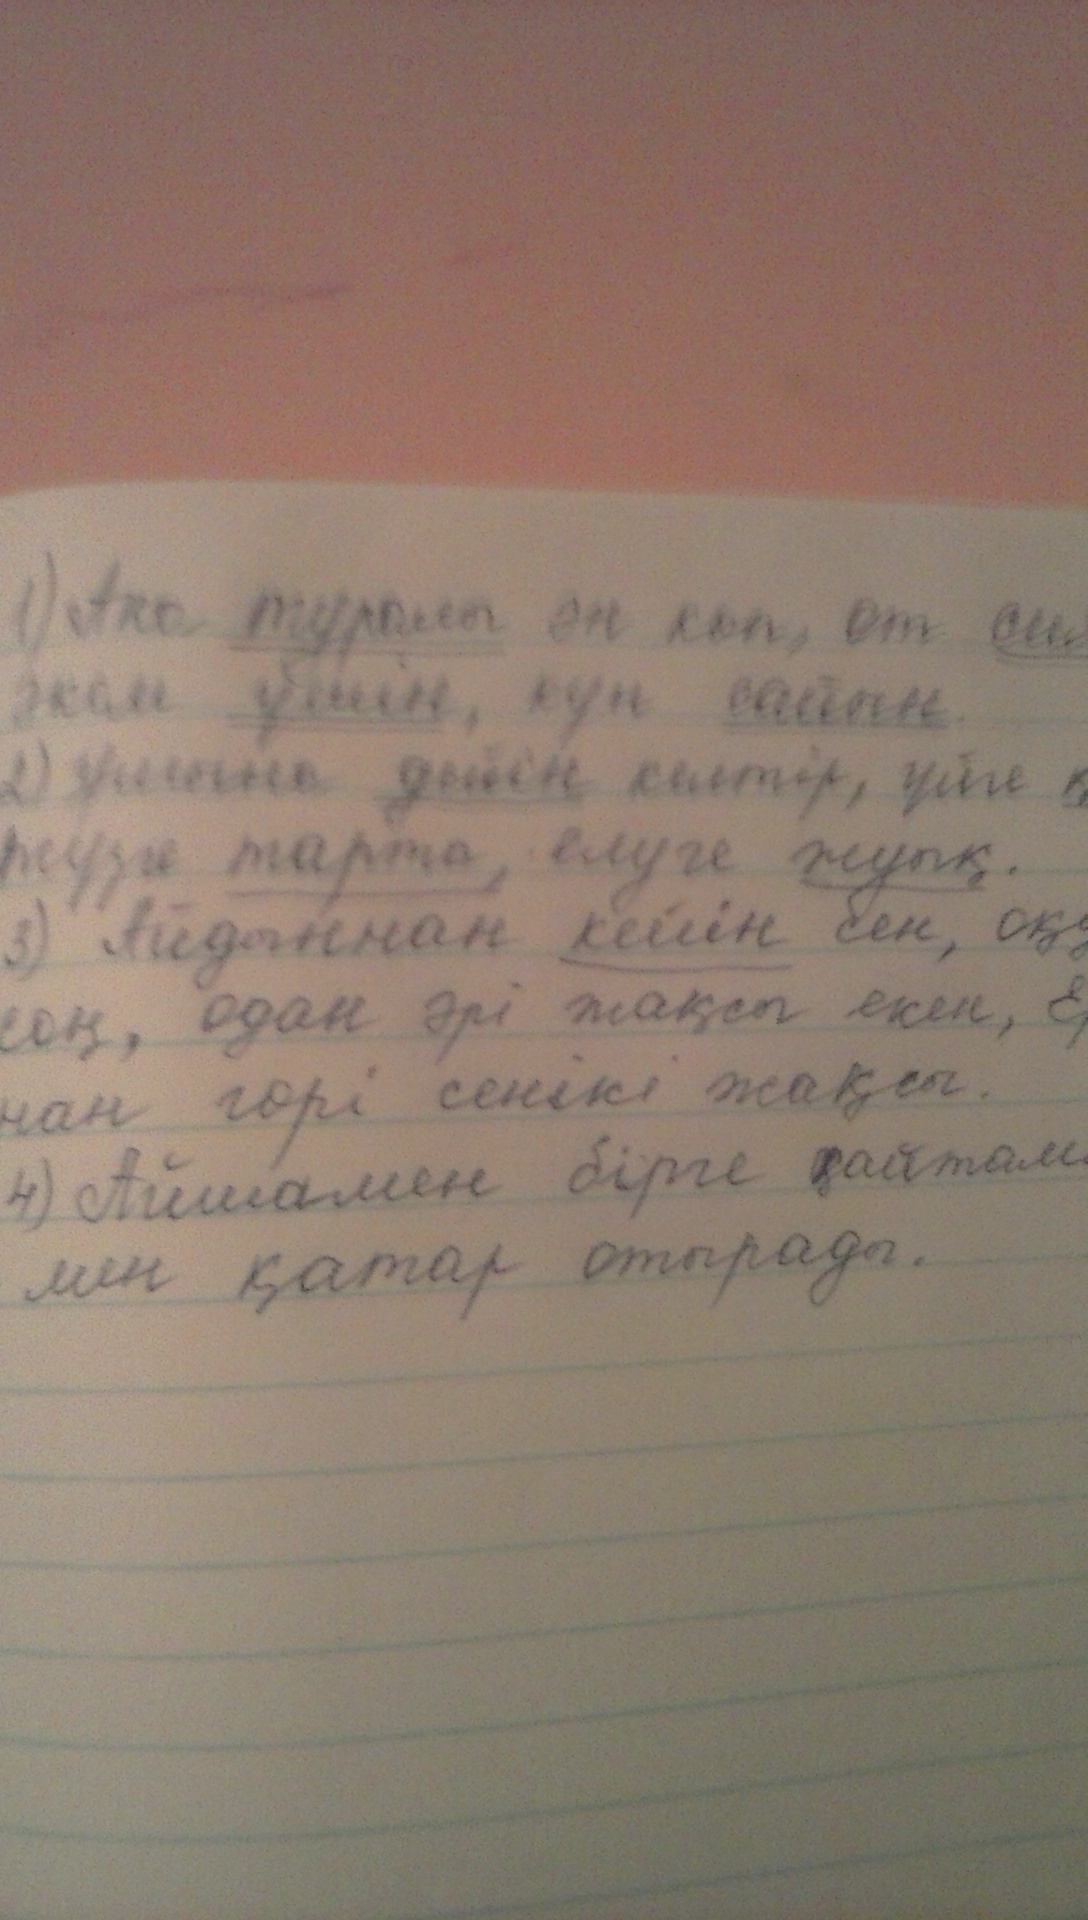 1) Ана туралы ән көп, от
әкем үшін, күн сайын.
2) дейін келтір, үйге
жүзге тарта, елуге жуық.
3) Айдыннан кейін сен,
соң, одан әрі жақсы екен,
нан гөрі сенікі жақсы.
4) Айшамен бірге
мен қатар отырады.